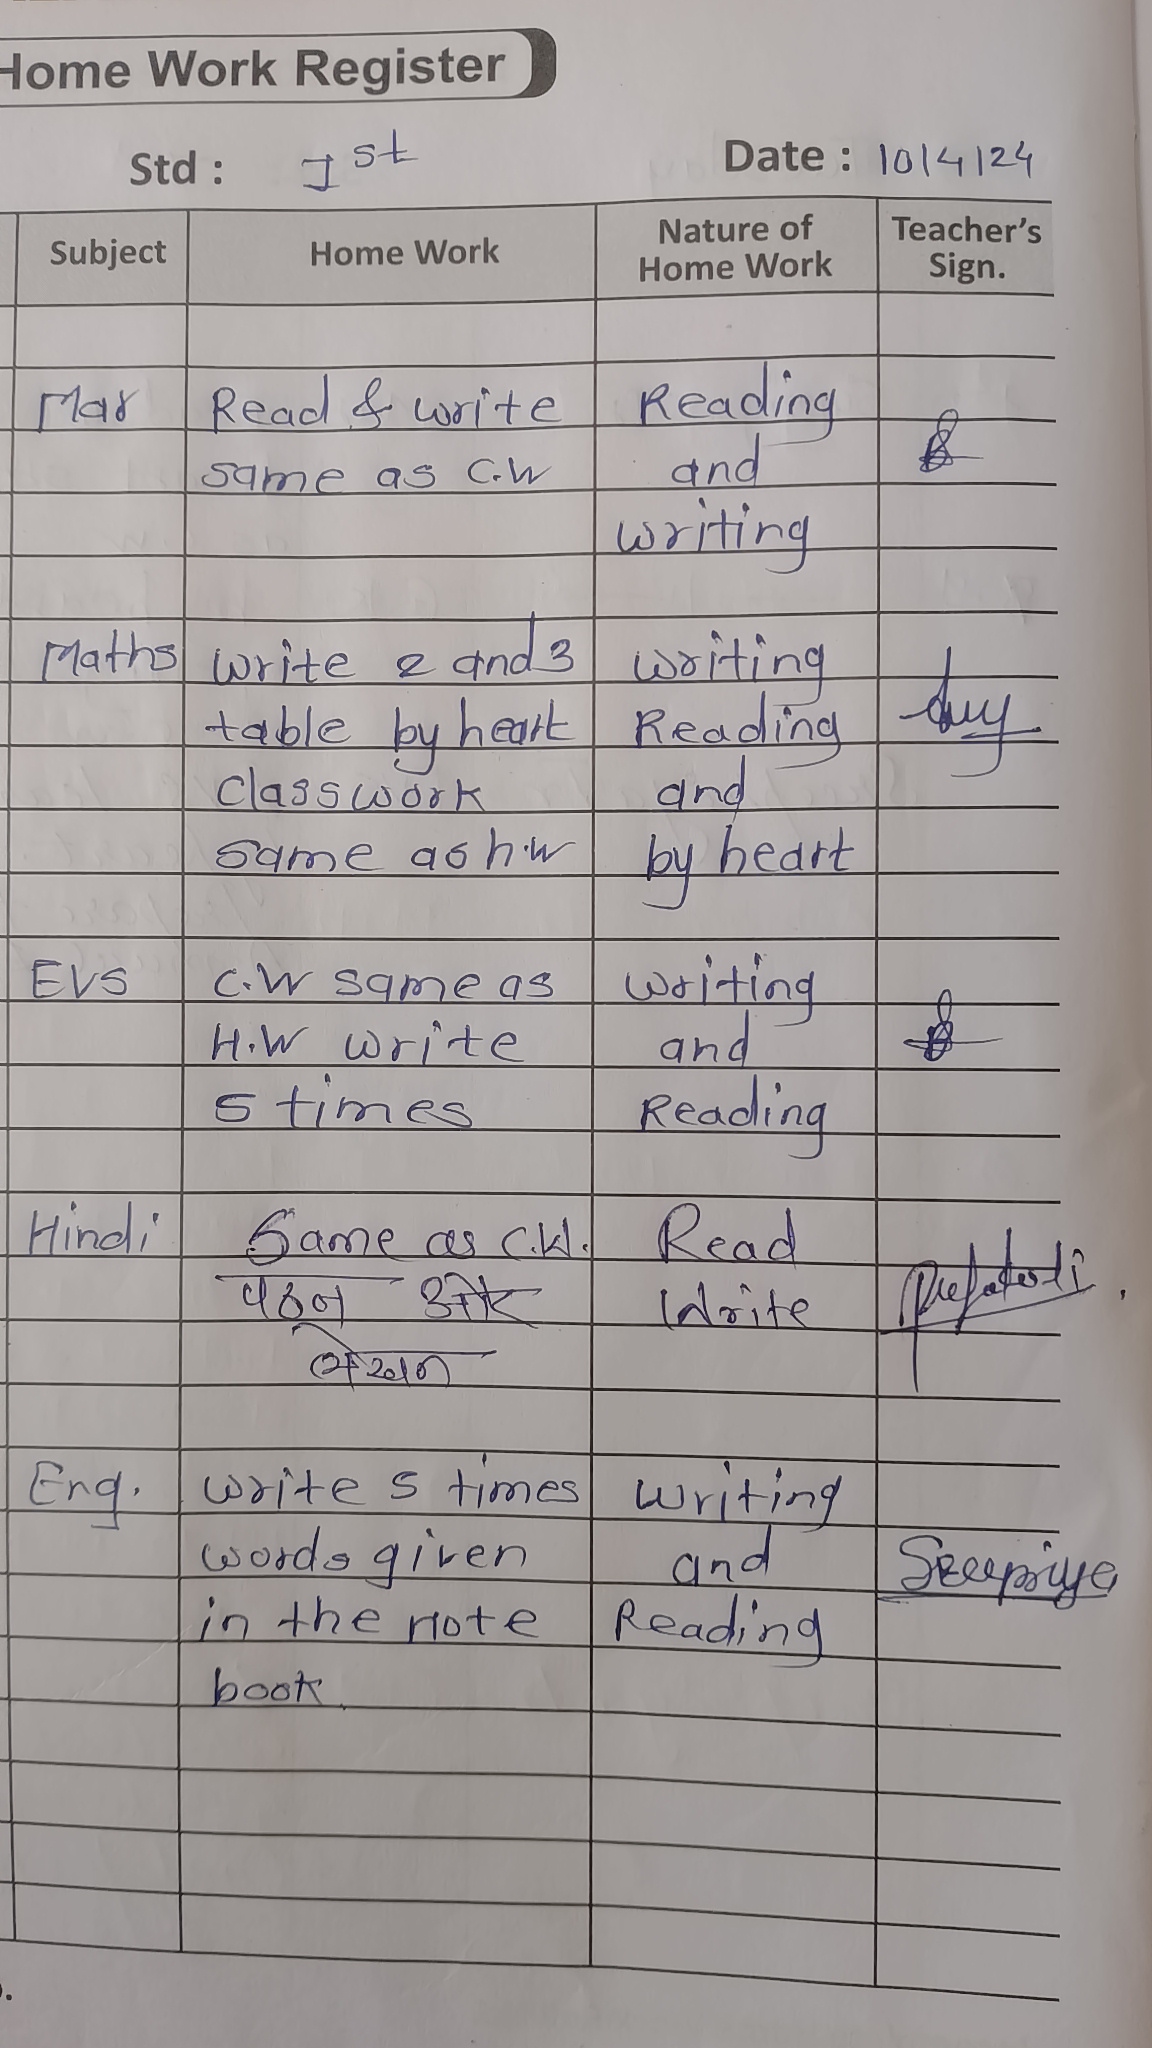 Home Work Register
Std : Ist Date : 10/4/24
Subject Home Work Nature of Home Work Teacher's Sign.
Mar Read & write Reading
same as C.W and
writing
Maths write 2 and 3 writing
table by heart Reading
classwork and
same as h.w by heart
EVS C.W same as writing
H.W write and
5 times Reading
Hindi Same as C.W. Read
पठन Write
Eng. write 5 times writing
words given and Sreepriya
in the note Reading
book